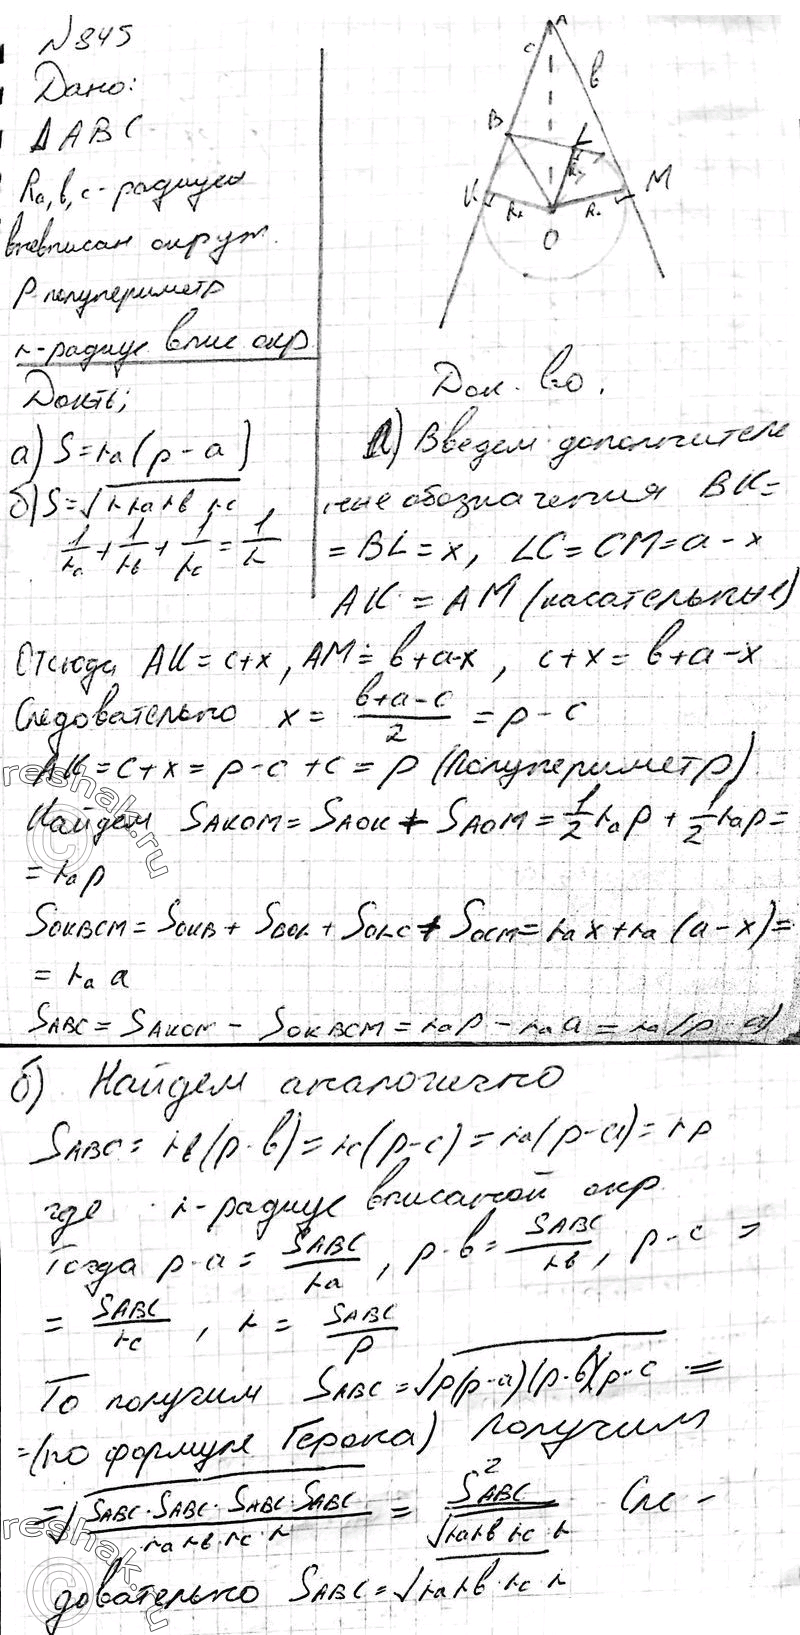 N 845
Дано:
ΔABC
Ra, b, c - радиусы
вневписан окруж.
p-полупериметр
r-радиус впис окр
Док-ть;
а) S=ra(p-a)
б) S=√(r ra rb rc)
1/ra + 1/rb + 1/rc = 1/r
A
c
b
B
L
K
M
O
Док-во.
а) Введем дополнитель
ные обозначения BK=
=BL=x, LC=CM=a-x
AK = AM (касательные)
Отсюда AK=c+x, AM=b+a-x, c+x=b+a-x
Следовательно x = (b+a-c)/2 = p-c
AK=c+x=p-c+c=p (Полупериметр)
Найдем SAKOM=SAOK+SAOM=1/2 ra p + 1/2 ra p=
=ra p
SOKBCM=SOKB+SBOL+SOLC+SOCM=ra x+ra(a-x)=
= ra a
SABC=SAKOM-SOKBCM=ra p-ra a=ra(p-a)
б) Найдем аналогично
SABC=rb(p-b)=rc(p-c)=ra(p-a)=rp
где r-радиус вписаной окр.
Тогда p-a = SABC/ra, p-b = SABC/rb, p-c =
= SABC/rc, r = SABC/p
То получим SABC=√(p(p-a)(p-b)(p-c) =
=(по формуле Герона) Получим
=√(SABC·SABC·SABC·SABC/ra·rb·rc·r) = S²ABC/√(ra·rb·rc·r) Сле-
довательно SABC=√(ra·rb·rc·r)
reshak.ru
reshak.ru